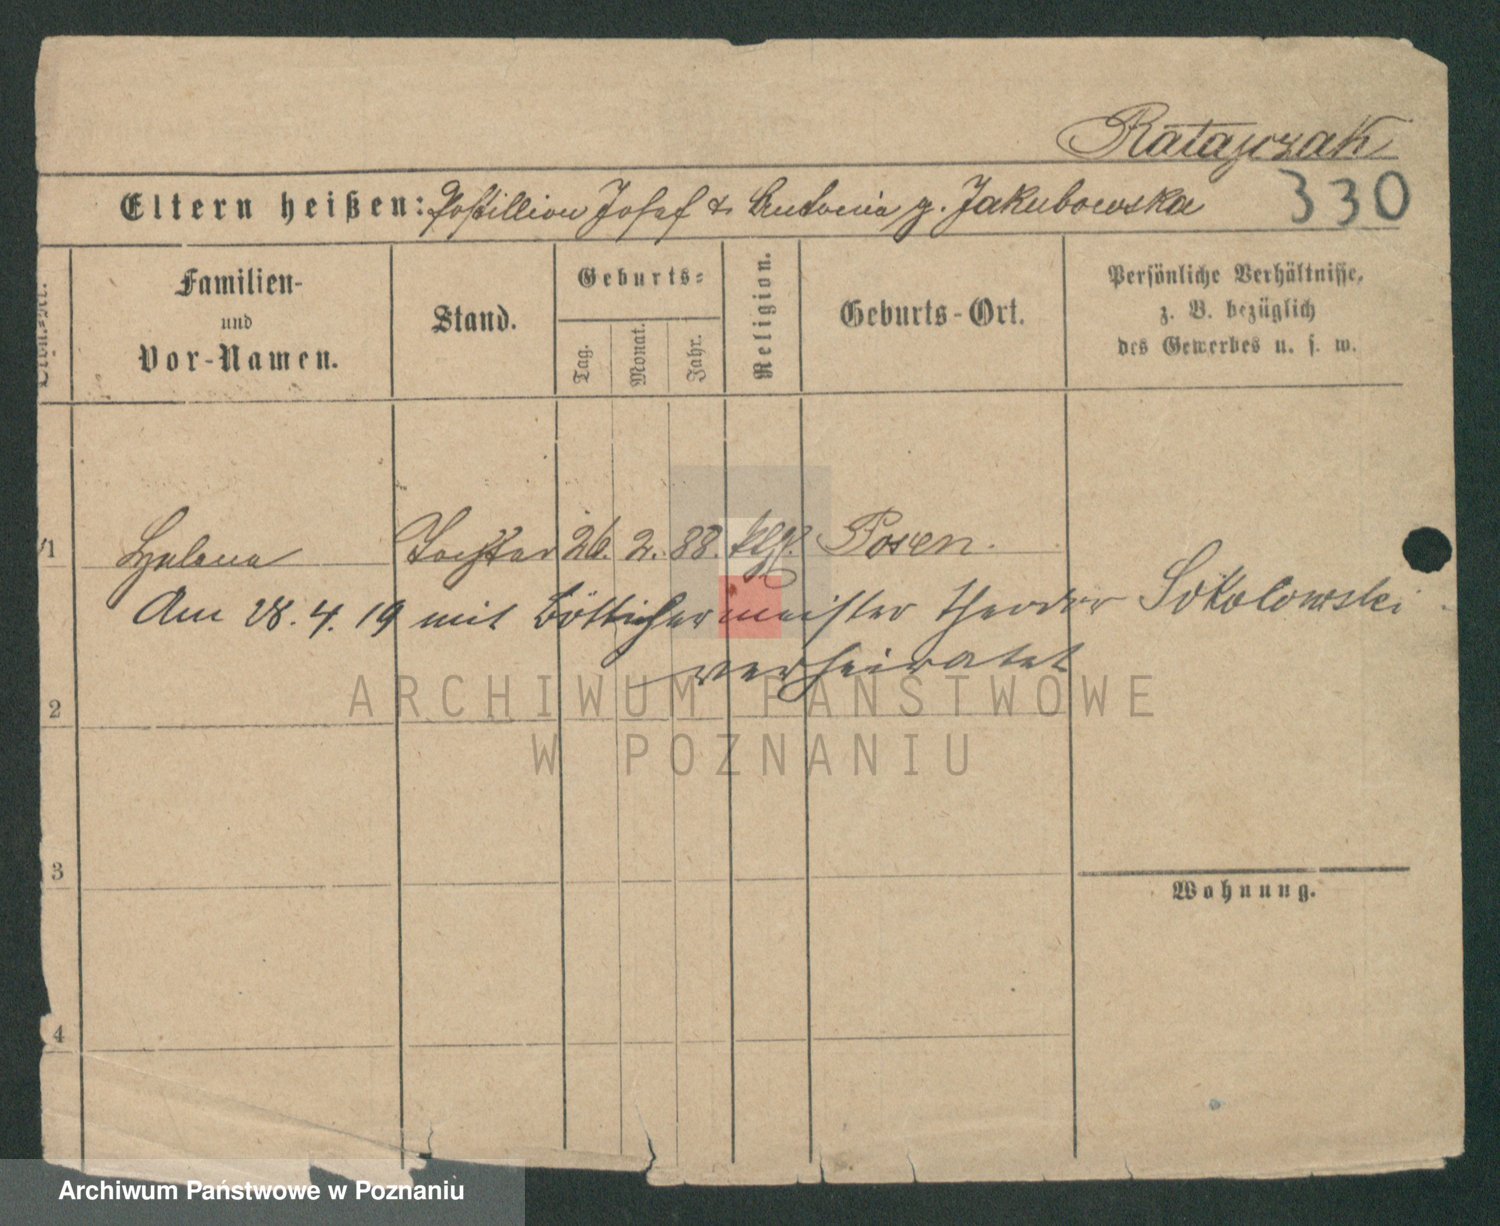 Ratajczak
Eltern heißen: Postillion Josef & Antonia g. Jakubowska
330
Familien-
und
Vor-Namen.
Stand.
Geburts-
Tag.
Monat.
Jahr.
Religion.
Geburts-Ort.
Persönliche Verhältnisse,
z. B. bezüglich
des Gewerbes u. s. w.
1 Helena Tochter 26. 2. 88. klg. Posen.
Am 28. 4. 19 mit Böttichermeister Theodor Sokolowski
verheiratet
2
3
Wohnung.
4
ARCHIWUM PAŃSTWOWE
W POZNANIU
Archiwum Państwowe w Poznaniu